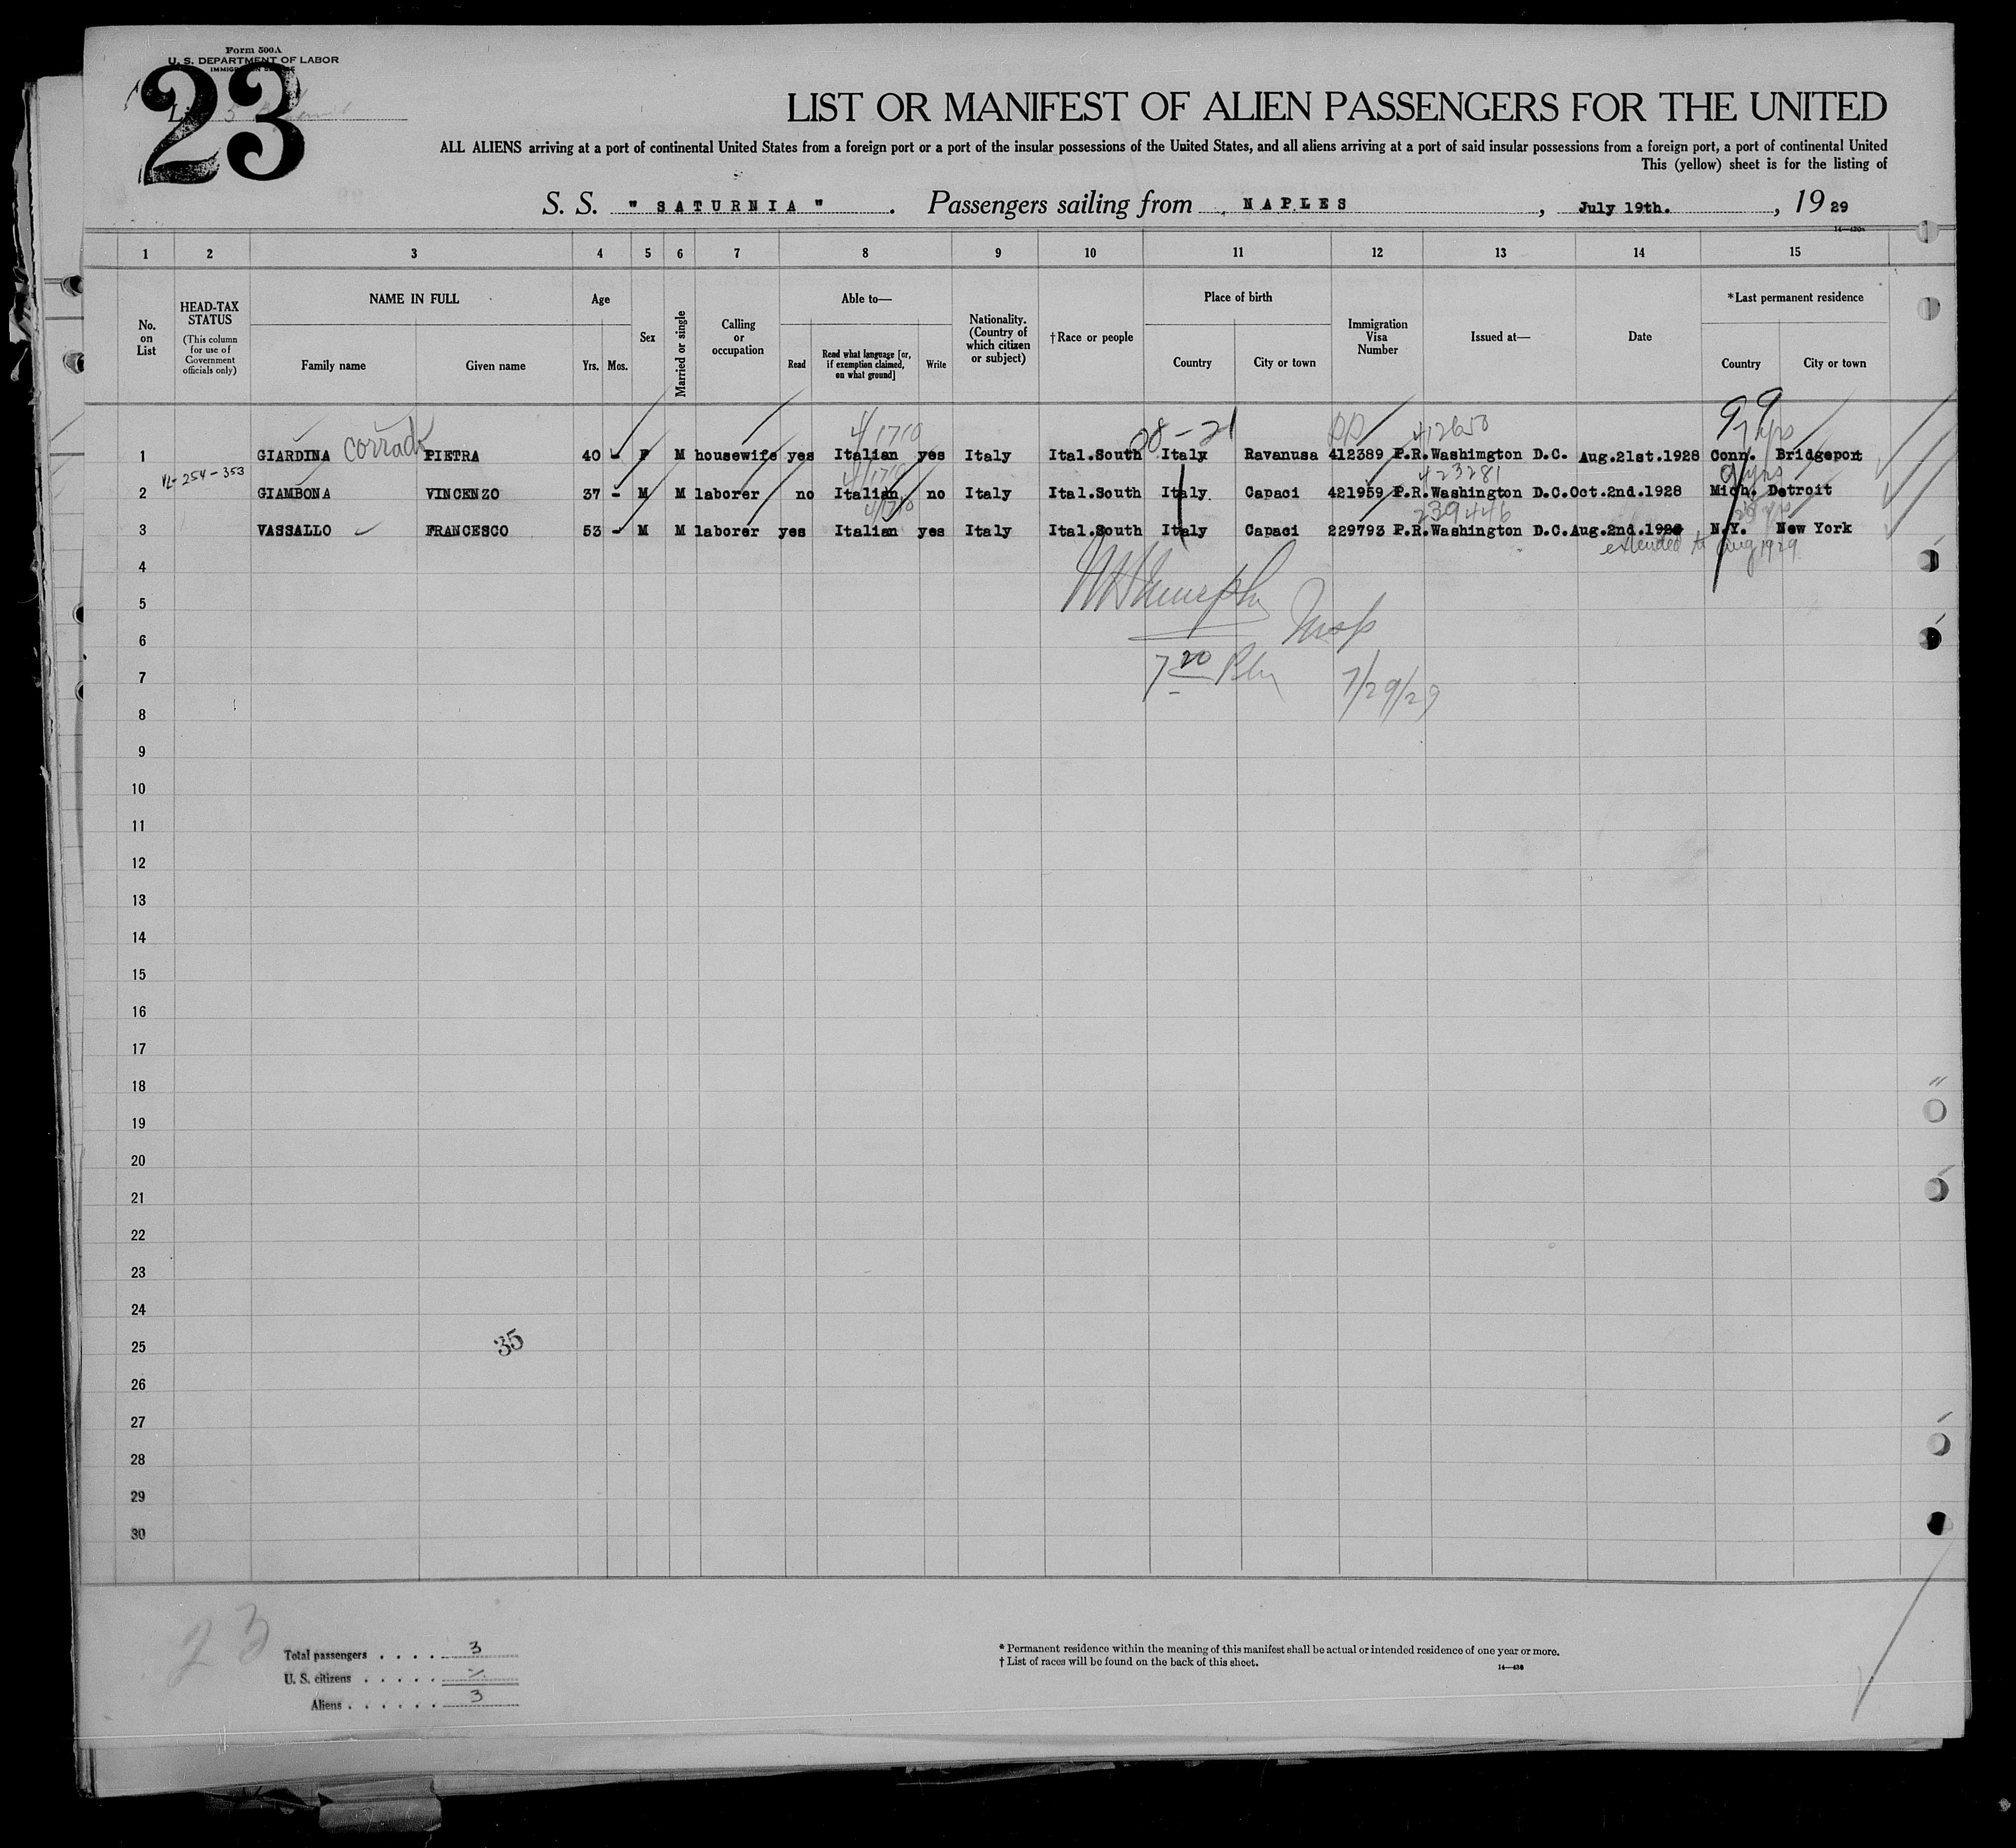 Form 500A
U. S. DEPARTMENT OF LABOR
23
LIST OR MANIFEST OF ALIEN PASSENGERS FOR THE UNITED
ALL ALIENS arriving at a port of continental United States from a foreign port or a port of the insular possessions of the United States, and all aliens arriving at a port of said insular possessions from a foreign port, a port of continental United
This (yellow) sheet is for the listing of
S. S. " SATURNIA " . Passengers sailing from NAPLES , July 19th. , 19 29
14—430a
1 2 3 4 5 6 7 8 9 10 11 12 13 14 15
No. on List
HEAD-TAX STATUS
(This column for use of Government officials only)
NAME IN FULL
Family name Given name
Age
Yrs. Mos.
Sex
Married or single
Calling or occupation
Able to—
Read
Read what language [or, if exemption claimed, on what ground]
Write
Nationality. (Country of which citizen or subject)
†Race or people
Place of birth
Country City or town
Immigration Visa Number
Issued at—
Date
*Last permanent residence
Country City or town
99
4/1710 08-21 PP 412650 7 yrs
1 GIARDINA Corrado PIETRA 40 - F M housewife yes Italian yes Italy Ital.South Italy Ravanusa 412389 P.R.Washimgton D.C. Aug.21st.1928 Conn. Bridgeport
VL-254-353 4/1710 423281 9 yrs
2 GIAMBONA VINCENZO 37 - M M laborer no Italian no Italy Ital.South Italy Capaci 421959 P.R.Washington D.C.Oct.2nd.1928 Mich. Detroit
4/1710 239446
3 VASSALLO FRANCESCO 53 - M M laborer yes Italian yes Italy Ital.South Italy Capaci 229793 P.R.Washington D.C.Aug.2nd.1928 N.Y. New York
extended to Aug 1929
4
5
Insp
6
7 20
7
7/29/29
8
9
10
11
12
13
14
15
16
17
18
19
20
21
22
23
24
35
25
26
27
28
29
30
23
Total passengers . . . . 3
U. S. citizens . . . . .
Aliens . . . . . . 3
* Permanent residence within the meaning of this manifest shall be actual or intended residence of one year or more.
† List of races will be found on the back of this sheet.
14—430